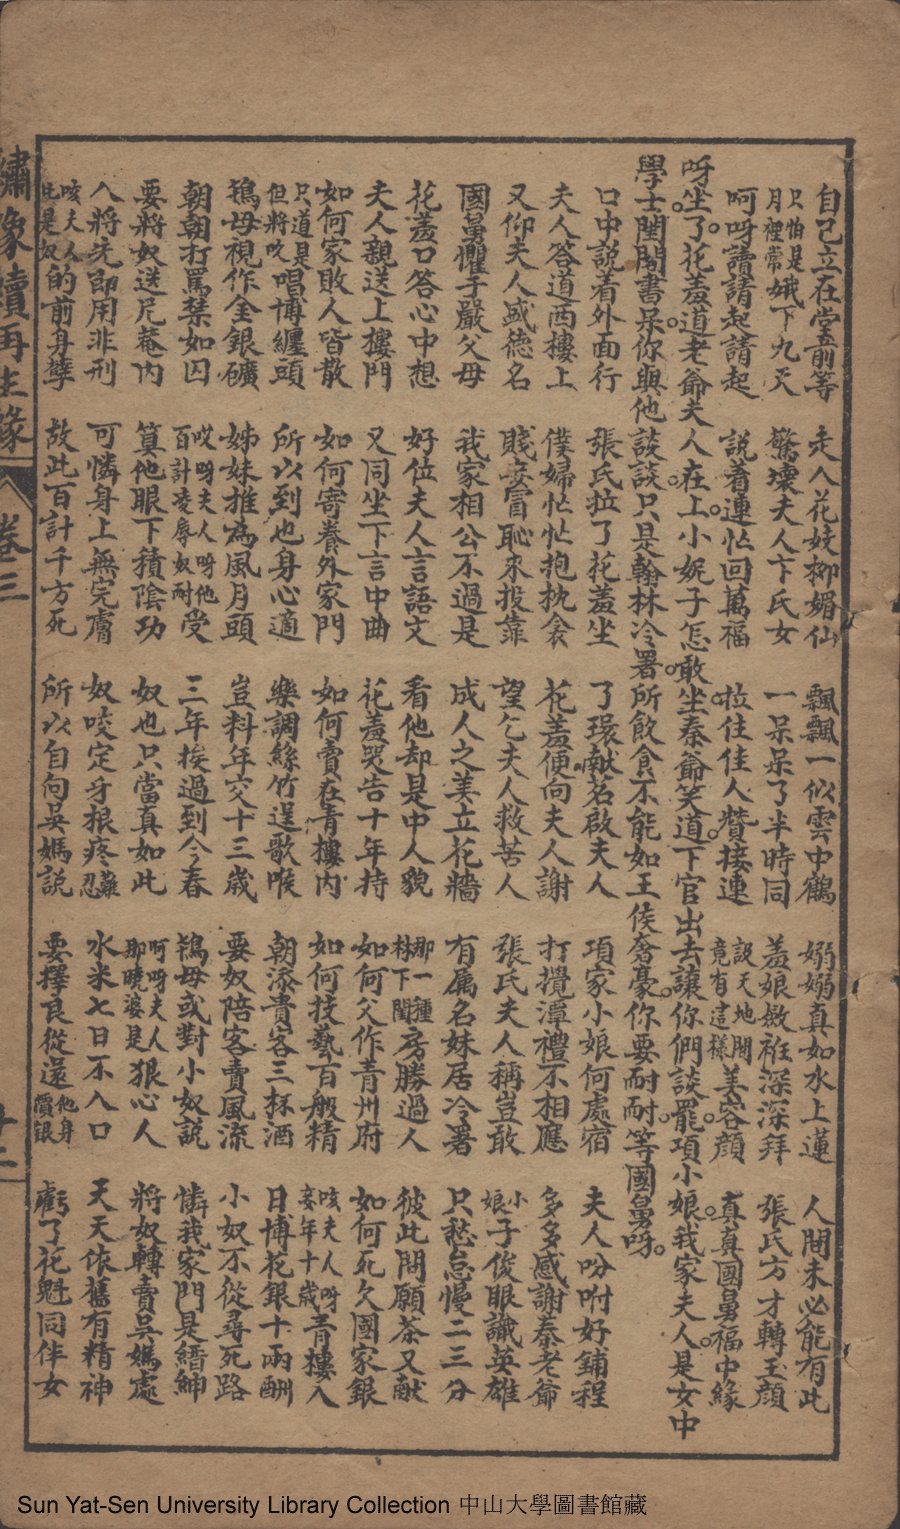 自己立在堂前等　走入花妓柳媚仙　飄飄一似雲中鶴　嫋嫋真如水上蓮　人間未必能有此
只怕是月裡常娥下九天　驚壞夫人卞氏女　一呆呆了半時同　羞娘斂袵深深拜　張氏方才轉玉顔
呵呀請請起請起　說着連忙回萬福　拉住佳人贊接連　設天地間竟有這樣美容顔　真真國舅福中緣
呀坐了。花羞道老爺夫人在上。小妮子怎敢坐。秦爺笑道。下官出去。讓你們談罷。項小娘。我家夫人。是女中
學士。閨閣書呆。你與他談談。只是翰林冷署。所飲食不能如王侯奢豪。你要耐耐。等國舅呀。
口中説着外面行　張氏拉了花羞坐　了環献茗啟夫人　項家小娘何處宿　夫人吩咐好鋪程
夫人答道西樓上　僕婦忙忙抱枕衾　花羞便向夫人謝　打攪潭禮不相應　多多感謝秦老爺
又仰夫人盛德名　賤妾冒恥來投靠　望乞夫人救苦人　張氏夫人稱豈敢　小娘子俊眼識英雄
國舅懼于嚴父母　我家相公不過是　成人之美立花牆　有屈名妹居冷署　只愁怠慢二三分
花羞口答心中想　好位夫人言語文　看他却是中人貌　那一種林下閨房勝過人　彼此閒願茶又献
夫人親送上樓門　又同坐下言中曲　花羞哭告十年持　如何父作青州府　如何死欠國家銀
如何家敗人皆散　如何寄養外家門　如何賣在青樓内　如何技藝百般精　咳夫人呀妾年十歲青樓入
只道是但將奴唱博纏頭　所以到也身心適　樂調絲竹逞歌喉　朝添貴客三杯酒　日博花銀十兩酬
鴇母視作金銀礦　姊妹推為風月頭　豈料年交十三歲　要奴陪客賣風流　小奴不從尋死路
朝朝打罵禁如囚　哎呀夫人呀他百計凌辱奴耐受　三年挨過到今春　鴇母或對小奴説　憐我家門是縉紳
要將奴送尼菴内　算他眼下積陰功　奴也只當真如此　呵呀夫人那曉婆是狠心人　將奴轉賣吳媽處
入將先郎用非刑　可憐身上無完膚　奴咬定牙根疼難忍　水米七日不入口　天天依舊有精神
咳夫人此是奴的前身孽　故此百計千方死　所以自向吳媽説　要擇良從還他身價銀　虧了花魁同伴女
繡像續再生緣　卷三　十二
Sun Yat-Sen University Library Collection 中山大學圖書館藏